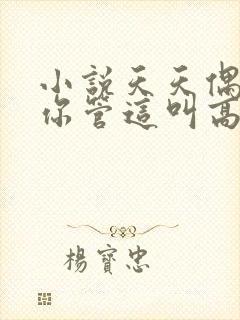 小說天天偶
你管這叫高
楊寶忠